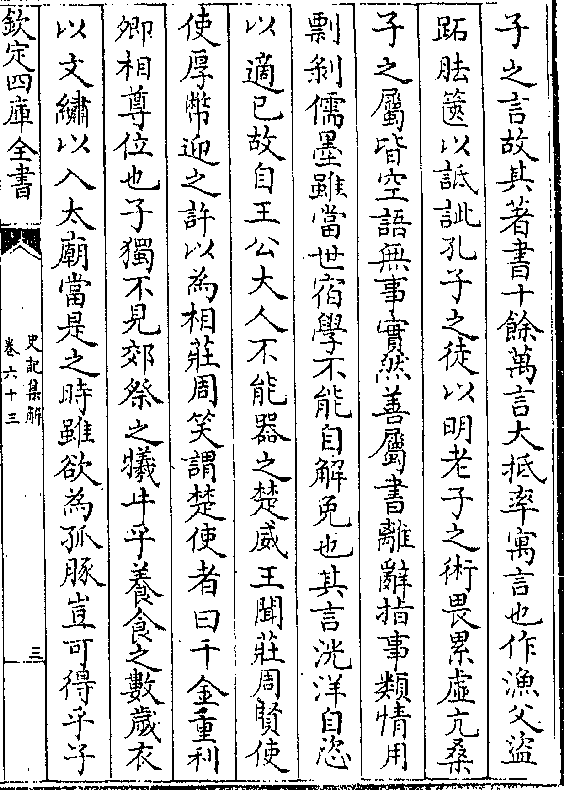 子之言故其著書十餘萬言大抵率寓言也作漁父盜
跖胠篋以詆訿孔子之徒以明老子之術畏累虛亢桑
子之屬皆空語無事實然善屬書離辭指事類情用
剽剝儒墨雖當世宿學不能自解免也其言洸洋自恣
以適己故自王公大人不能器之楚威王聞莊周賢使
使厚幣迎之許以為相莊周笑謂楚使者曰千金重利
卿相尊位也子獨不見郊祭之犧牛乎養食之數歲衣
以文繡以入太廟當是之時雖欲為孤豚豈可得乎子
欽定四庫全書
史記集解
卷六十三
三